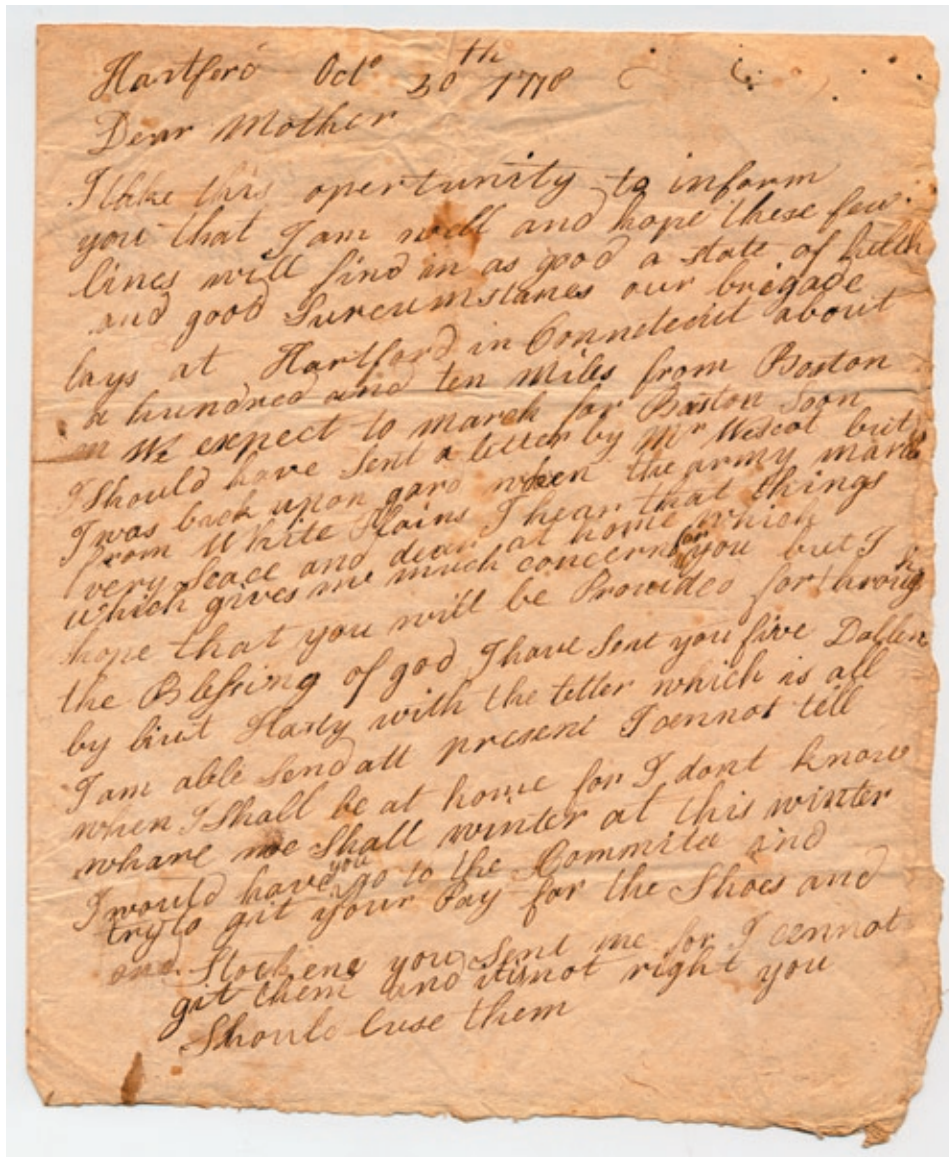 Hartford Octo 30th 1778
Dear Mother
I take this opertunity to inform
you that I am well and hope these few
lines will find in as good a state of helth
and good Surcumstanes our brigade
lays at Hartford in Connetecut about
a hundred and ten miles from Boston
We expect to march for Boston Soon
I Should have Sent a letter by Mr Wescot but
I was back upon gard when the army march
from White Plains I hear that things
very Scace and dear at home which
which gives me much concern for you but I
hope that you will be Provided for through
the Blessing of god I have Sent you five Dollers
by liut Hardy with the letter which is all
I am able Send att present I cannot tell
when I Shall be at home for I dont know
whare we Shall winter at this winter
I would have you go to the Commite and
try to git your Pay for the Shoes and
and Stockens you Sent me for I cannot
git them and it is not right you
Should luse them